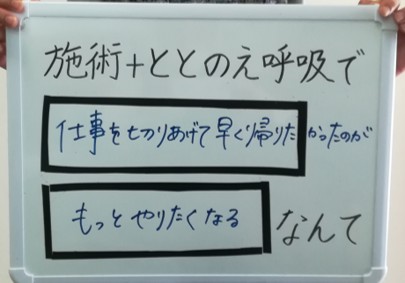 施術+ととのえ呼吸で
仕事を切りあげて早く帰りたかったのが
もっとやりたくなるなんて